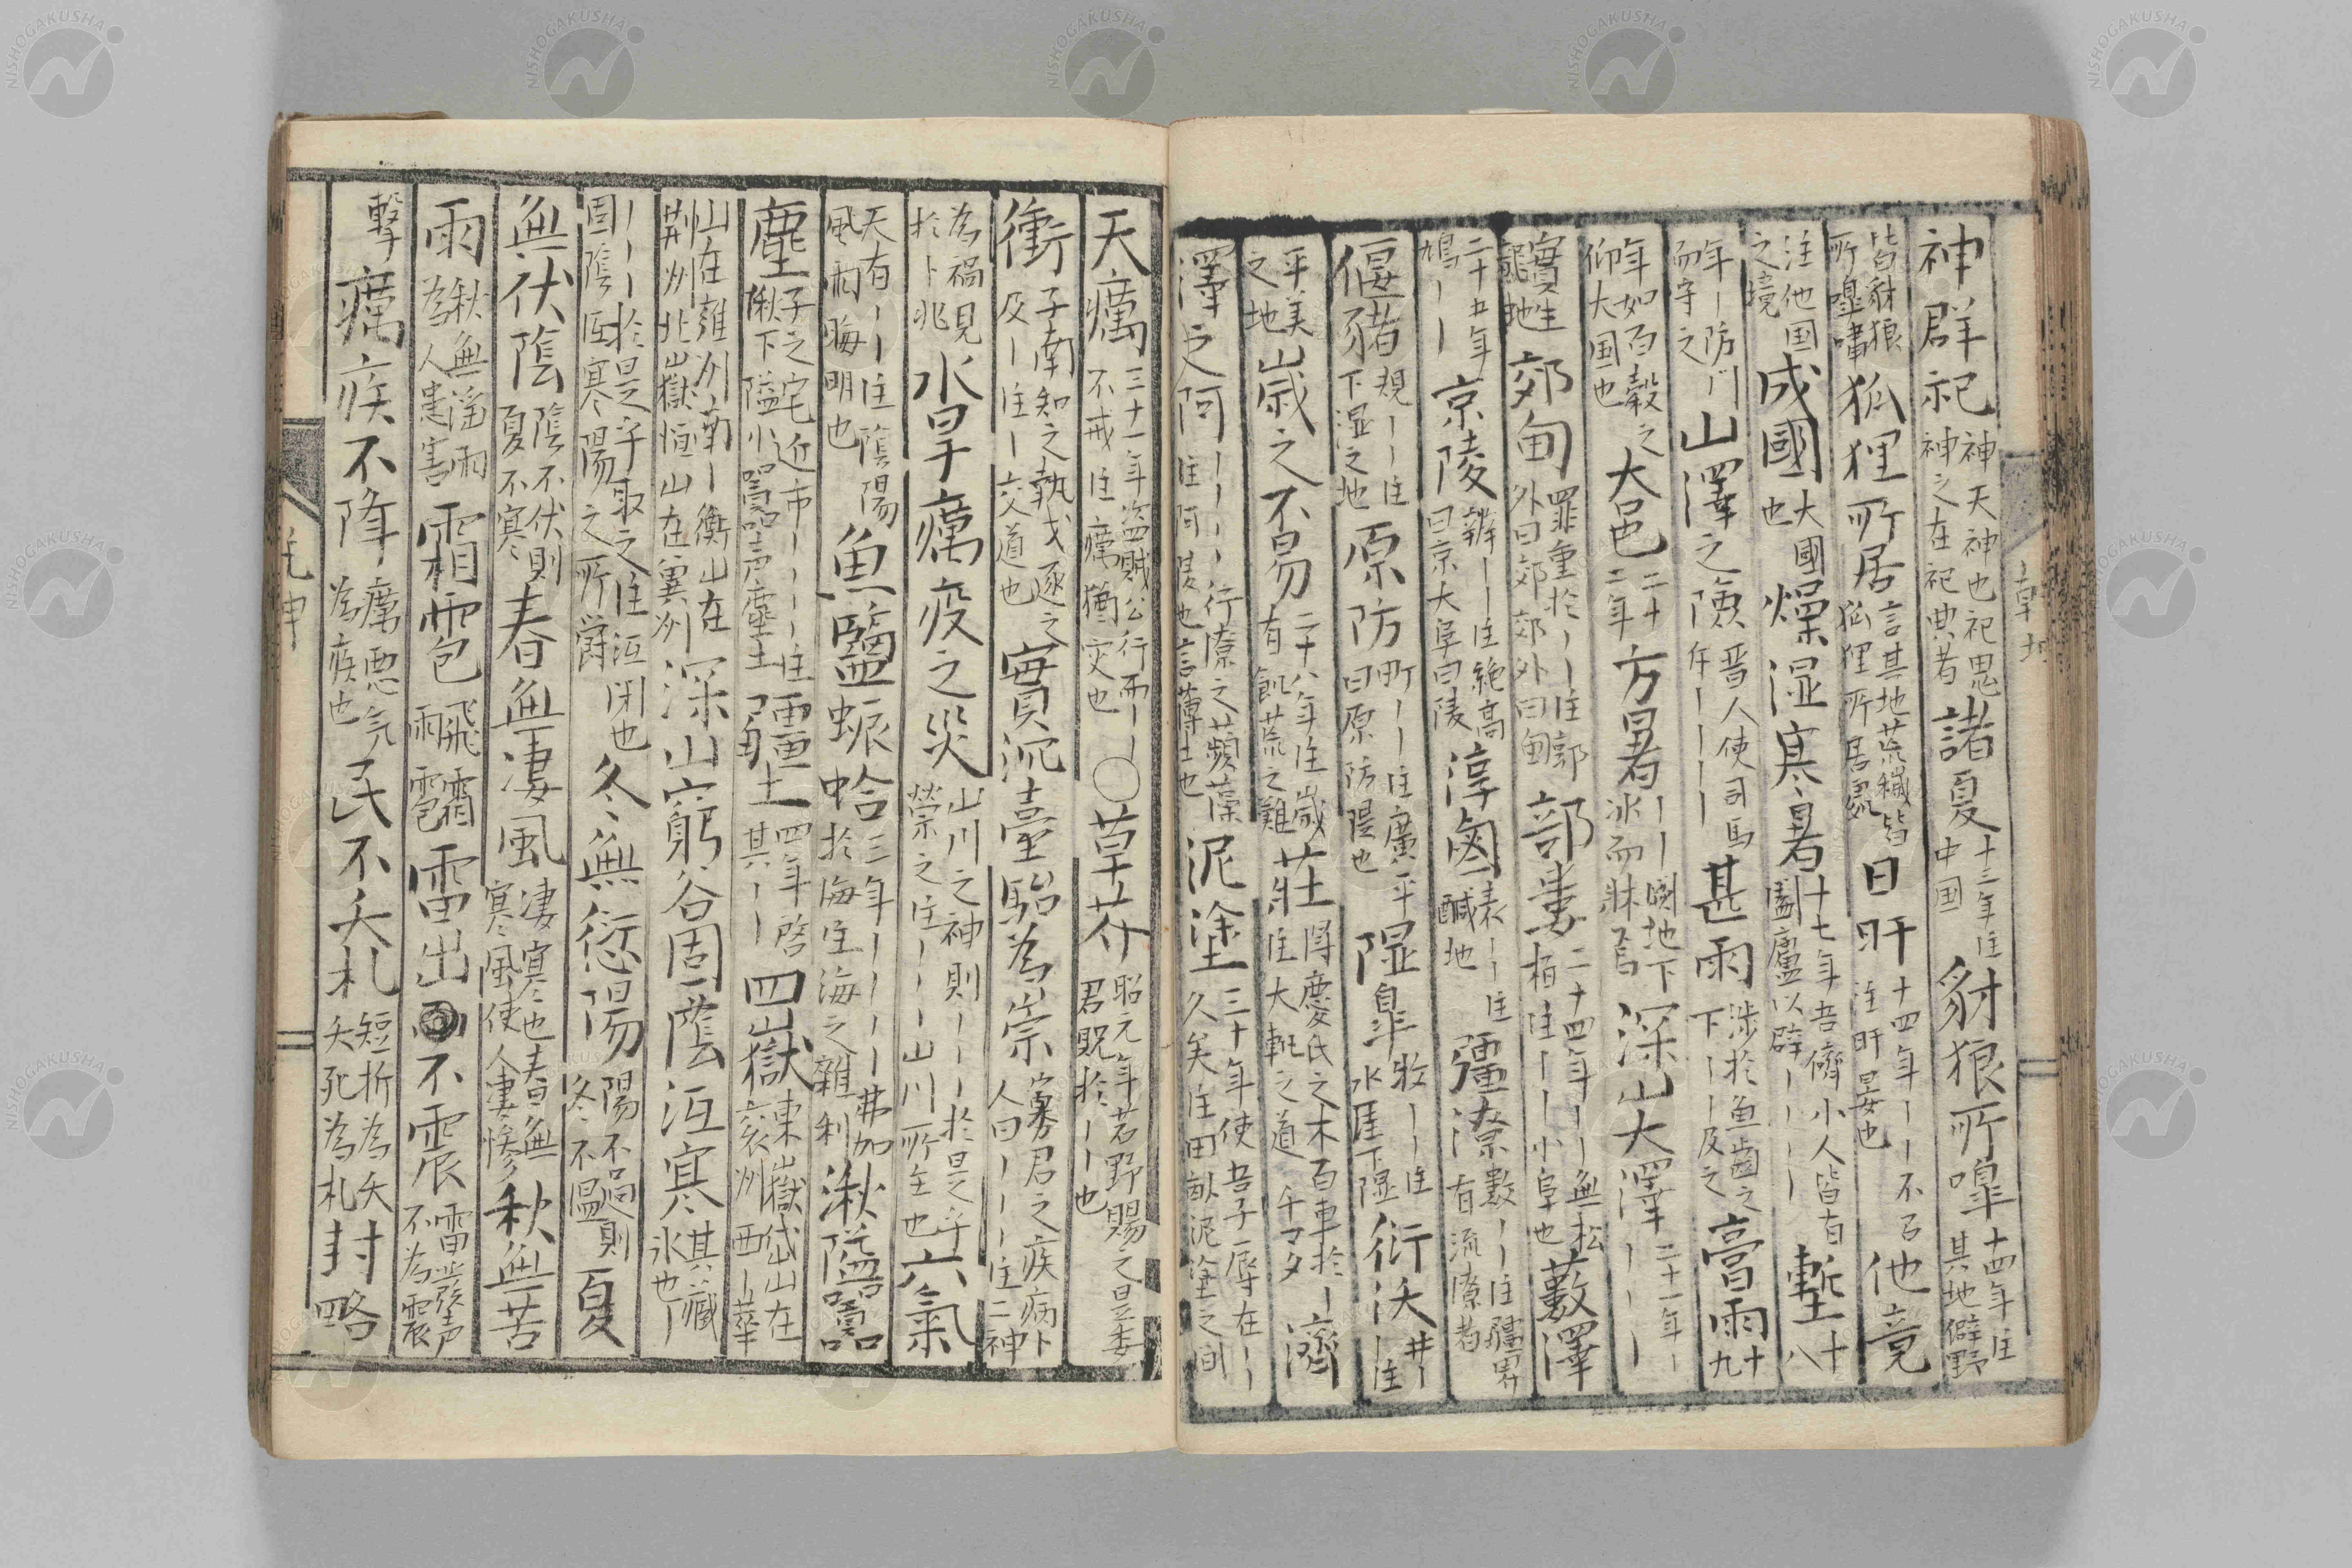 神群祀 神天神也祀思 神之在祀典者 諸夏 十三年注 中国 豺狼所嘷 十四年注 其地僻野
皆豺狼 所嘷嘯 狐狸所居 言其地荒穢皆 狐狸所居處 日旰 十四年ーー不召 注旰晏也 他竟
注他国 之境 成國 大國 也 燥湿寒暑 十七年吾儕小人皆有 闔廬以辟ーーーー 塹 十 八
年ー防门 而守之 山澤之險 晋人使司馬 斥ーーーー 甚雨 涉於魚齒之 下ーー及之 膏雨 十 九
年如百穀之 仰大国也 大邑 二十 二年 方暑 ーー闕地下 冰而牀焉 深山大澤 二十一年ー ーーー
實生 龍地 郊甸 罪重於ーー注郭 外曰郊郊外曰甸 部婁 二十四年ーー無松 柏注ーー小阜也 藪澤
二十五年 鳩ーー 京陵 辨ーー注絶高 曰京大阜曰陵 淳鹵 表ーー注 鹹地 彊潦 數ーー注疆界 有流潦者
偃豬 規ーー注 下湿之地 原防 町ーー注廣平 曰原防隄也 隰皐 牧ーー注 水厓下隰 衍沃 井ー ー注
平美 之地 歳之不易 二十八年注歳 有飢荒之難 荘 得慶氏之木百車於ー 注大軏之道 千マタ 濟
澤之阿 ーーーー行潦之蘋藻 注阿隄也言薄土也 泥塗 三十年使吾子辱在ーー 久矣注田畝泥塗之間
天癘 三十一年盗賊公行而ーー 不戒注癘猶灾也 〇草芥 昭元年若野賜之是委 君貺於ーー也
衝 子南知之執戈逐之 及ー注ー交道也 實沉臺駘為祟 寡君之疾病卜 人曰ーーーー注二神
為禍見 於卜兆 水旱癘疫之災 山川之神則ーーー於是乎 禜之注ーーー山川所主也 六氣
天有ーー注陰陽 風雨晦明也 魚鹽蜃蛤 三年ーーーー弗加 於海注海之雜利 湫隘囂
塵 子之宅近市ーーーー注 湫下隘小囂声塵土 疆土 四年啓 其ーー 四嶽 東嶽岱山在 兗州西ー華
山在雍州南ー衡山在 荊州北嶽恒山在冀州 深山窮谷固陰沍寒 其藏 氷也ー
ーーー於是乎取之注沍閉也 固陰沍寒陽之所 冬無愆陽 陽不過則 冬不温 夏
無伏陰 陰不伏則 夏不寒 春無凄風 凄寒也春無 寒風使人凄惨 秋無苦
雨 秋無淫雨 為人患害 霜雹 飛霜 雨雹 雷出不震 雷發声 不為震
擊 癘疾不降 癘悪気 為疾也 民不夭札 短折為夭 夭死為札 封略